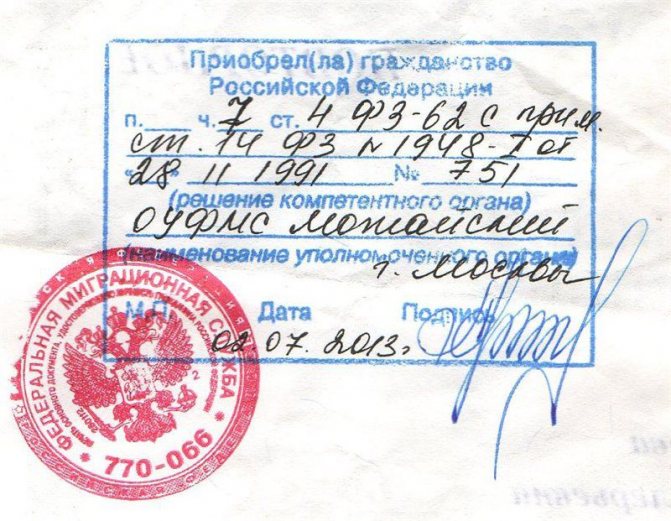 Приобрел(ла) гражданство
Российской Федерации
п.___ ч. 7 ст. 4 ФЗ-62 с прим.
ст. 14 ФЗ N 1948-I от
"28" 11 1991 № 751
(решение компетентного органа)
ОУФМС Можайский
(наименование уполномоченного органа)
г. Москвы
М.П. Дата Подпись
02.07.2013г
ФЕДЕРАЛЬНАЯ МИГРАЦИОННАЯ СЛУЖБА
* 770-066 *